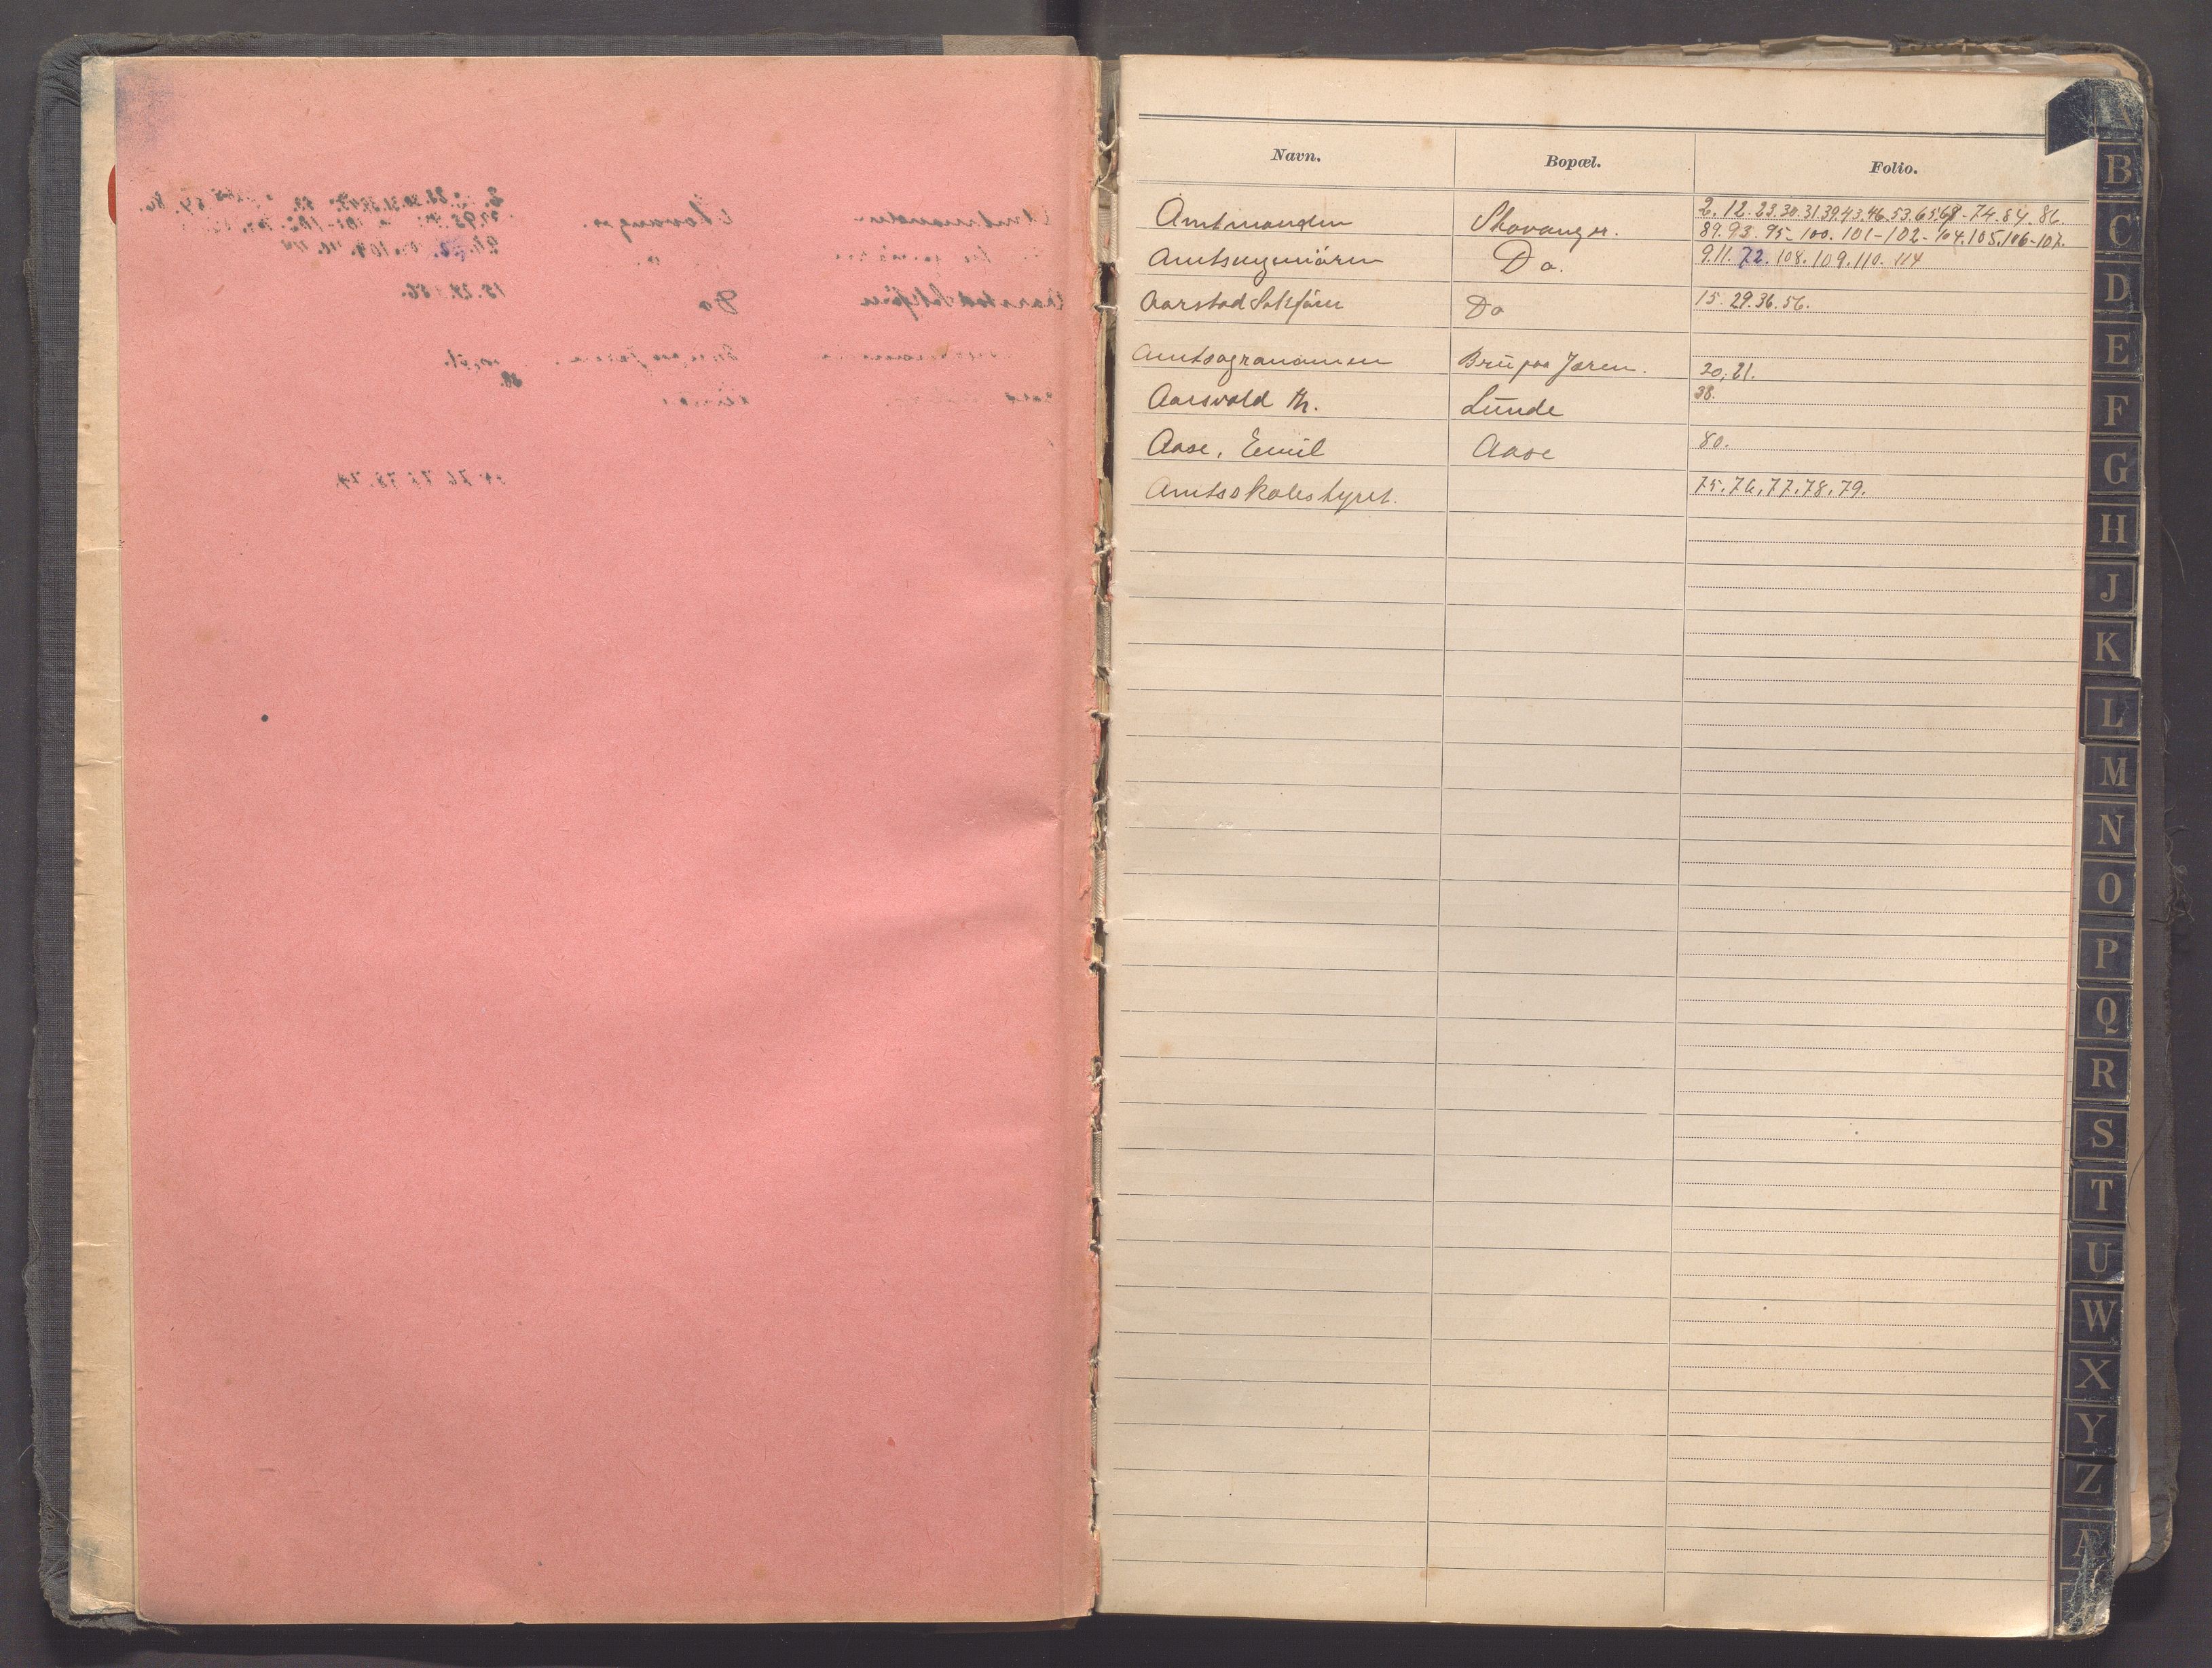 Navn. Bopæl. Folio.
Amtmanden Stavanger. 2. 12. 23. 30. 31. 39. 43. 46. 53. 65. 68 - 74. 84. 86.
89. 93. 95 - 100. 101 - 102 - 104. 105. 106 - 107.
Amtsingeniören Do. 9. 11. 72. 108. 109. 110. 114
Aarstad Sakförer Do 15. 29. 36. 56.
Amtsagronomen Bru paa Jæren. 20, 21.
Aarsvold Th. Lunde 38.
Aase, Emil Aase 80.
Amtsskolestyret. 75. 76, 77. 78. 79.
B
C
D
E
F
G
H
J
K
L
M
N
O
P
Q
R
S
T
U
W
X
Y
Z
Æ